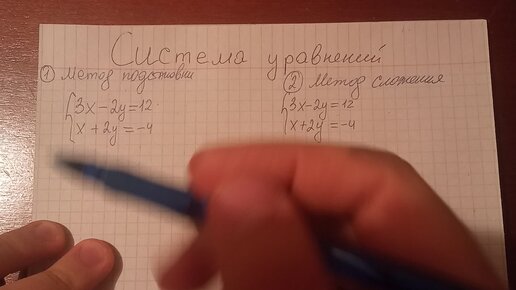 Система уравнений
① Метод подстановки
{3x-2y=12
x+2y=-4
② Метод сложения
{3x-2y=12
x+2y=-4